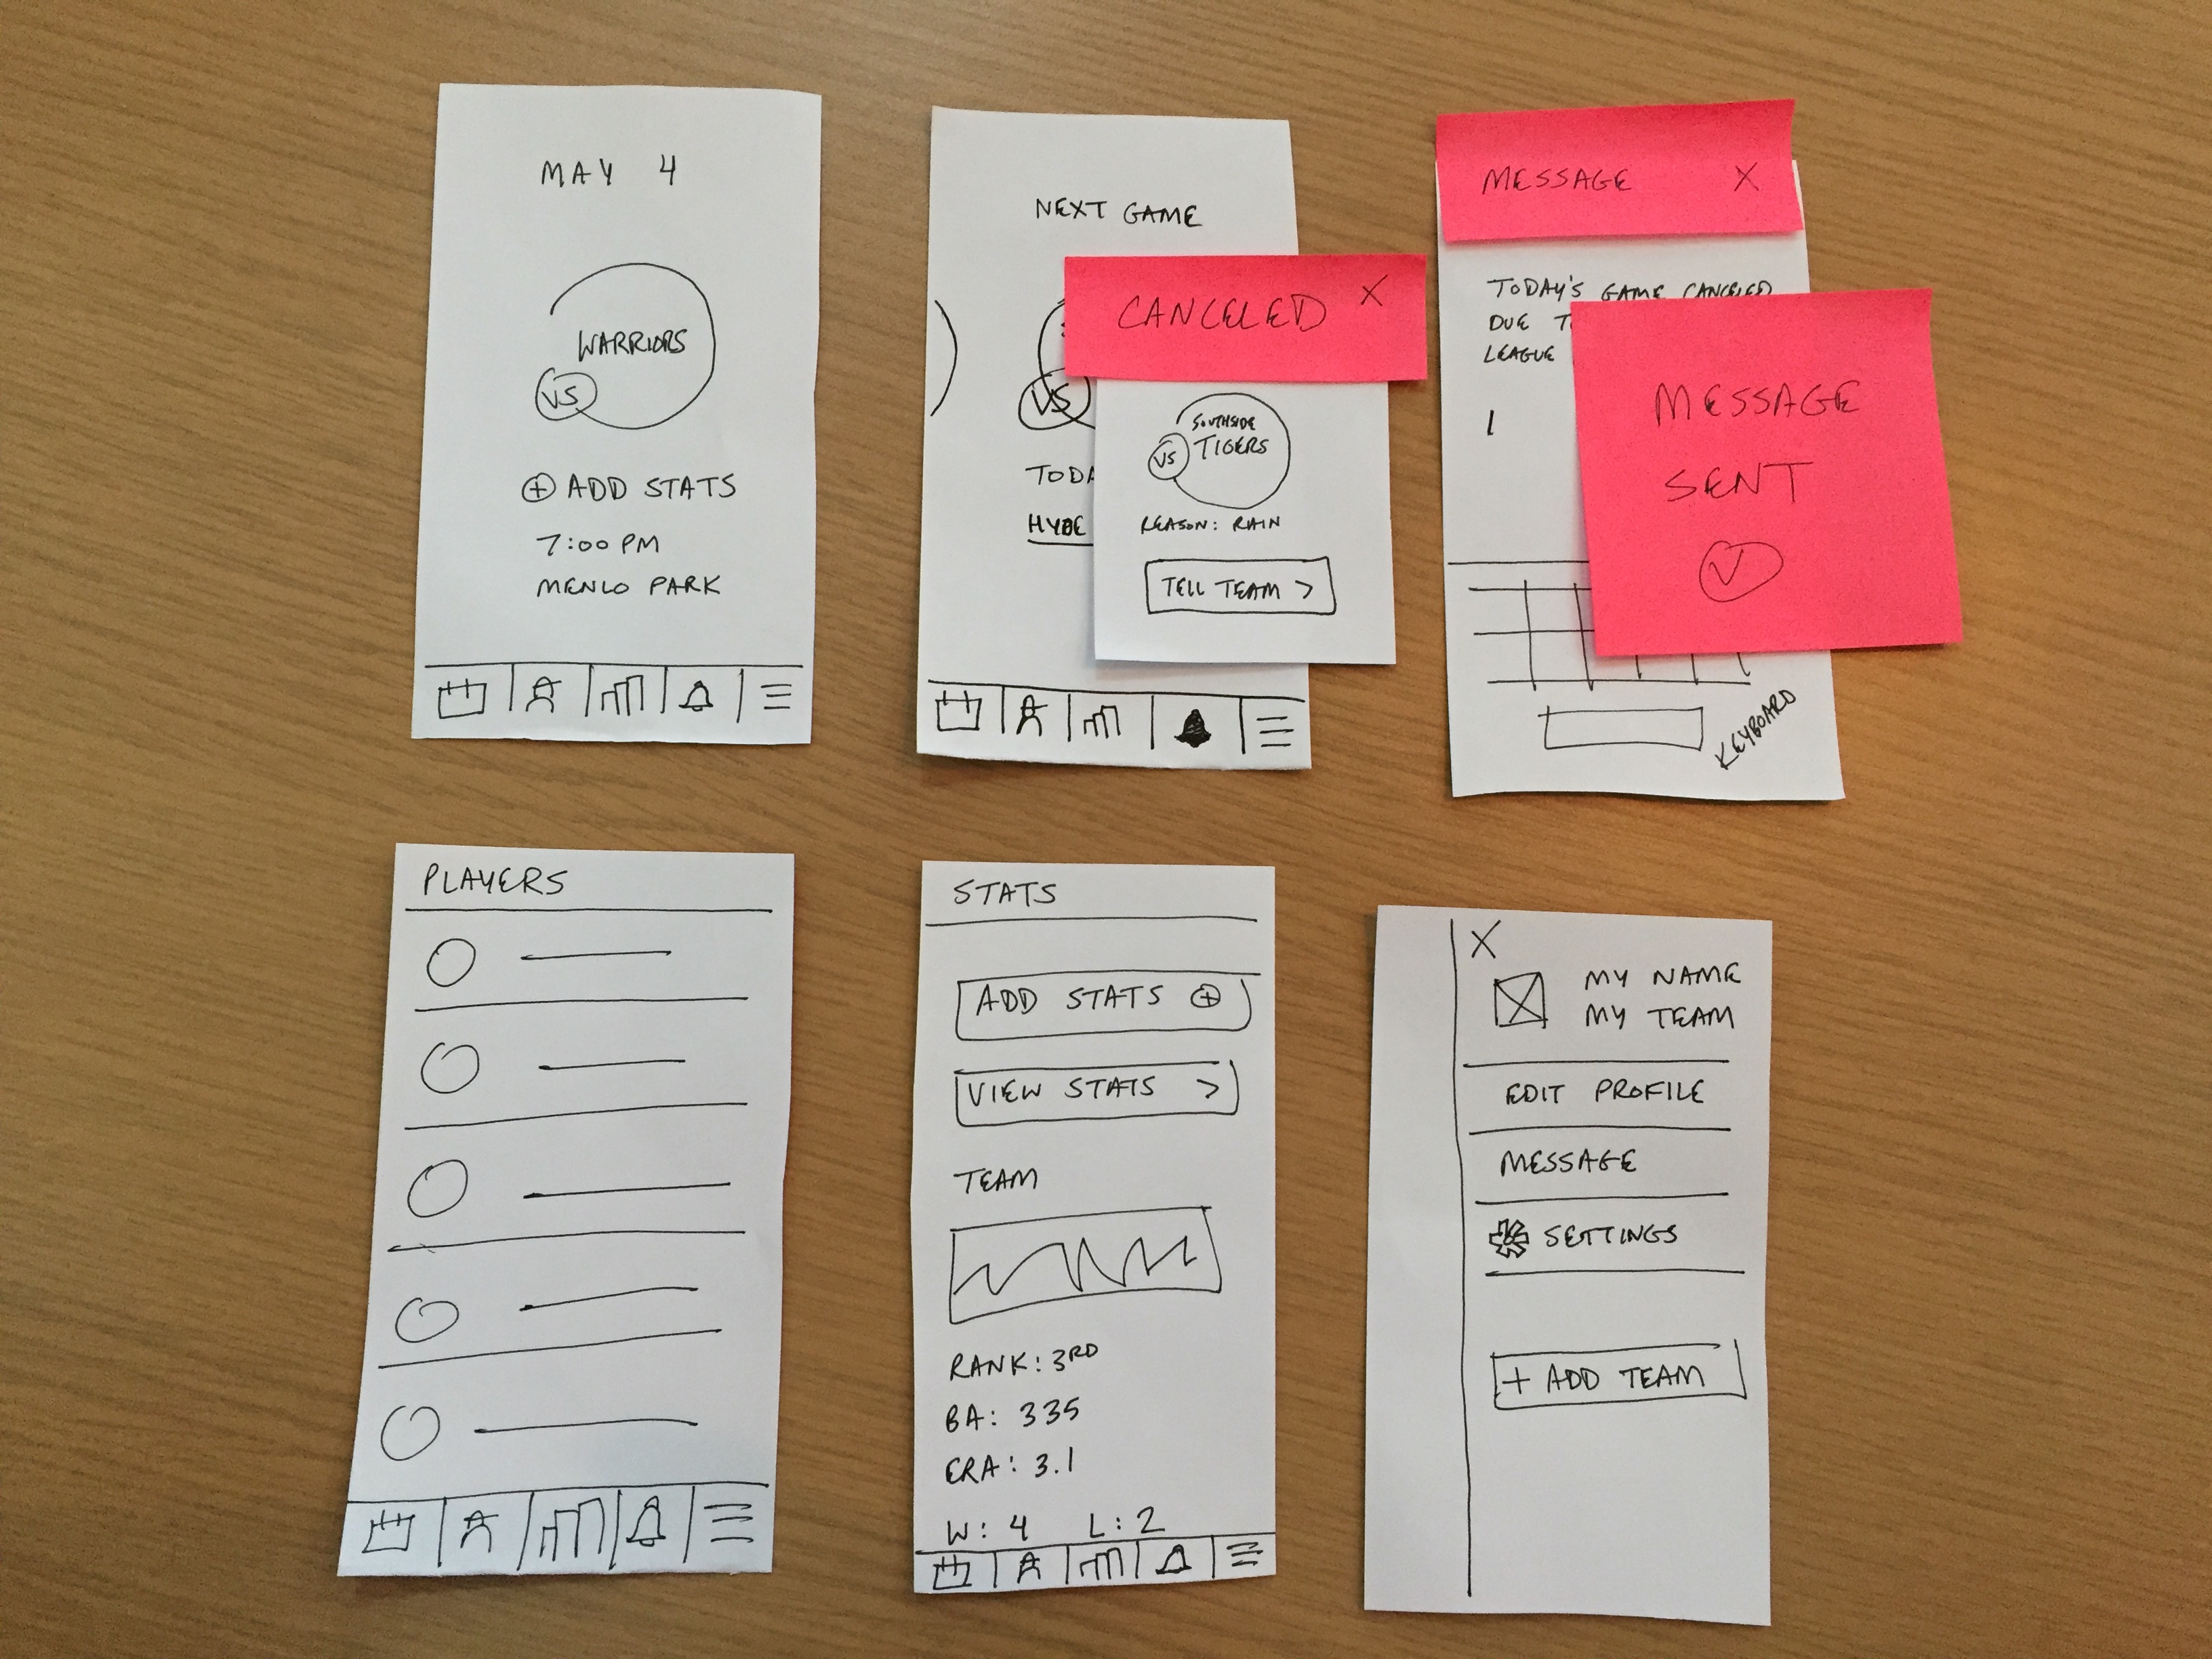 MAY 4
WARRIORS
VS
+ ADD STATS
7:00 PM
MENLO PARK
NEXT GAME
VS
HYDE
CANCELED X
SOUTHSIDE
VS TIGERS
REASON: RAIN
TELL TEAM >
MESSAGE X
TODAY'S GAME CANCELED
DUE
LEAGUE
MESSAGE
SENT
KEYBOARD
PLAYERS
STATS
ADD STATS +
VIEW STATS >
TEAM
RANK: 3RD
BA: 335
ERA: 3.1
W: 4 L: 2
X
MY NAME
MY TEAM
EDIT PROFILE
MESSAGE
SETTINGS
+ ADD TEAM